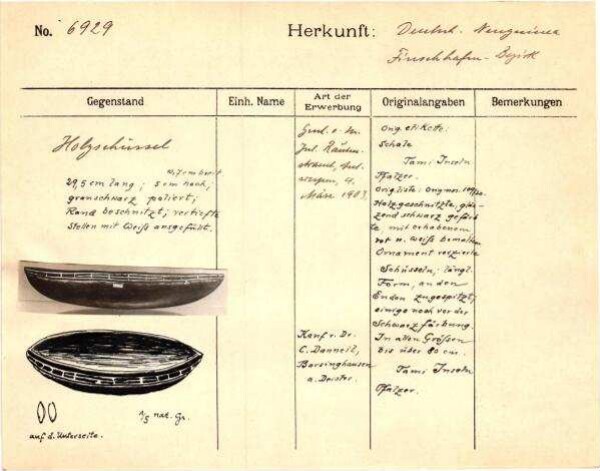 No. 6929
Herkunft: Deutsch. Neuguinea
Finschhafen-Bezirk
Gegenstand
Einh. Name
Art der Erwerbung
Originalangaben
Bemerkungen
Holzschüssel
breit
29,5 cm lang; 5 cm hoch;
grauschwarz poliert;
Rand beschnitzt; vertiefte
Stellen mit Weiß ausgefüllt.
auf d. Unterseite.
1/5 nat. Gr.
März 1903.
Kauf v. Dr.
C. Danneil,
Barsinghausen
a. Deister.
Orig. etikete:
Schale
Tami Inseln
Pfalzer.
Origliste:
Holzgeschnitzte, glän-
zend schwarz gefärb
te, mit erhabenem
rot u. weiß bemalten
Ornament verzierte
Schüsseln; längl.
Form, an den
Enden zugespitzt;
einige noch vor der
Schwarzfärbung.
In allen Größen
bis über 80 cm.
Tami Inseln
Pfalzer.